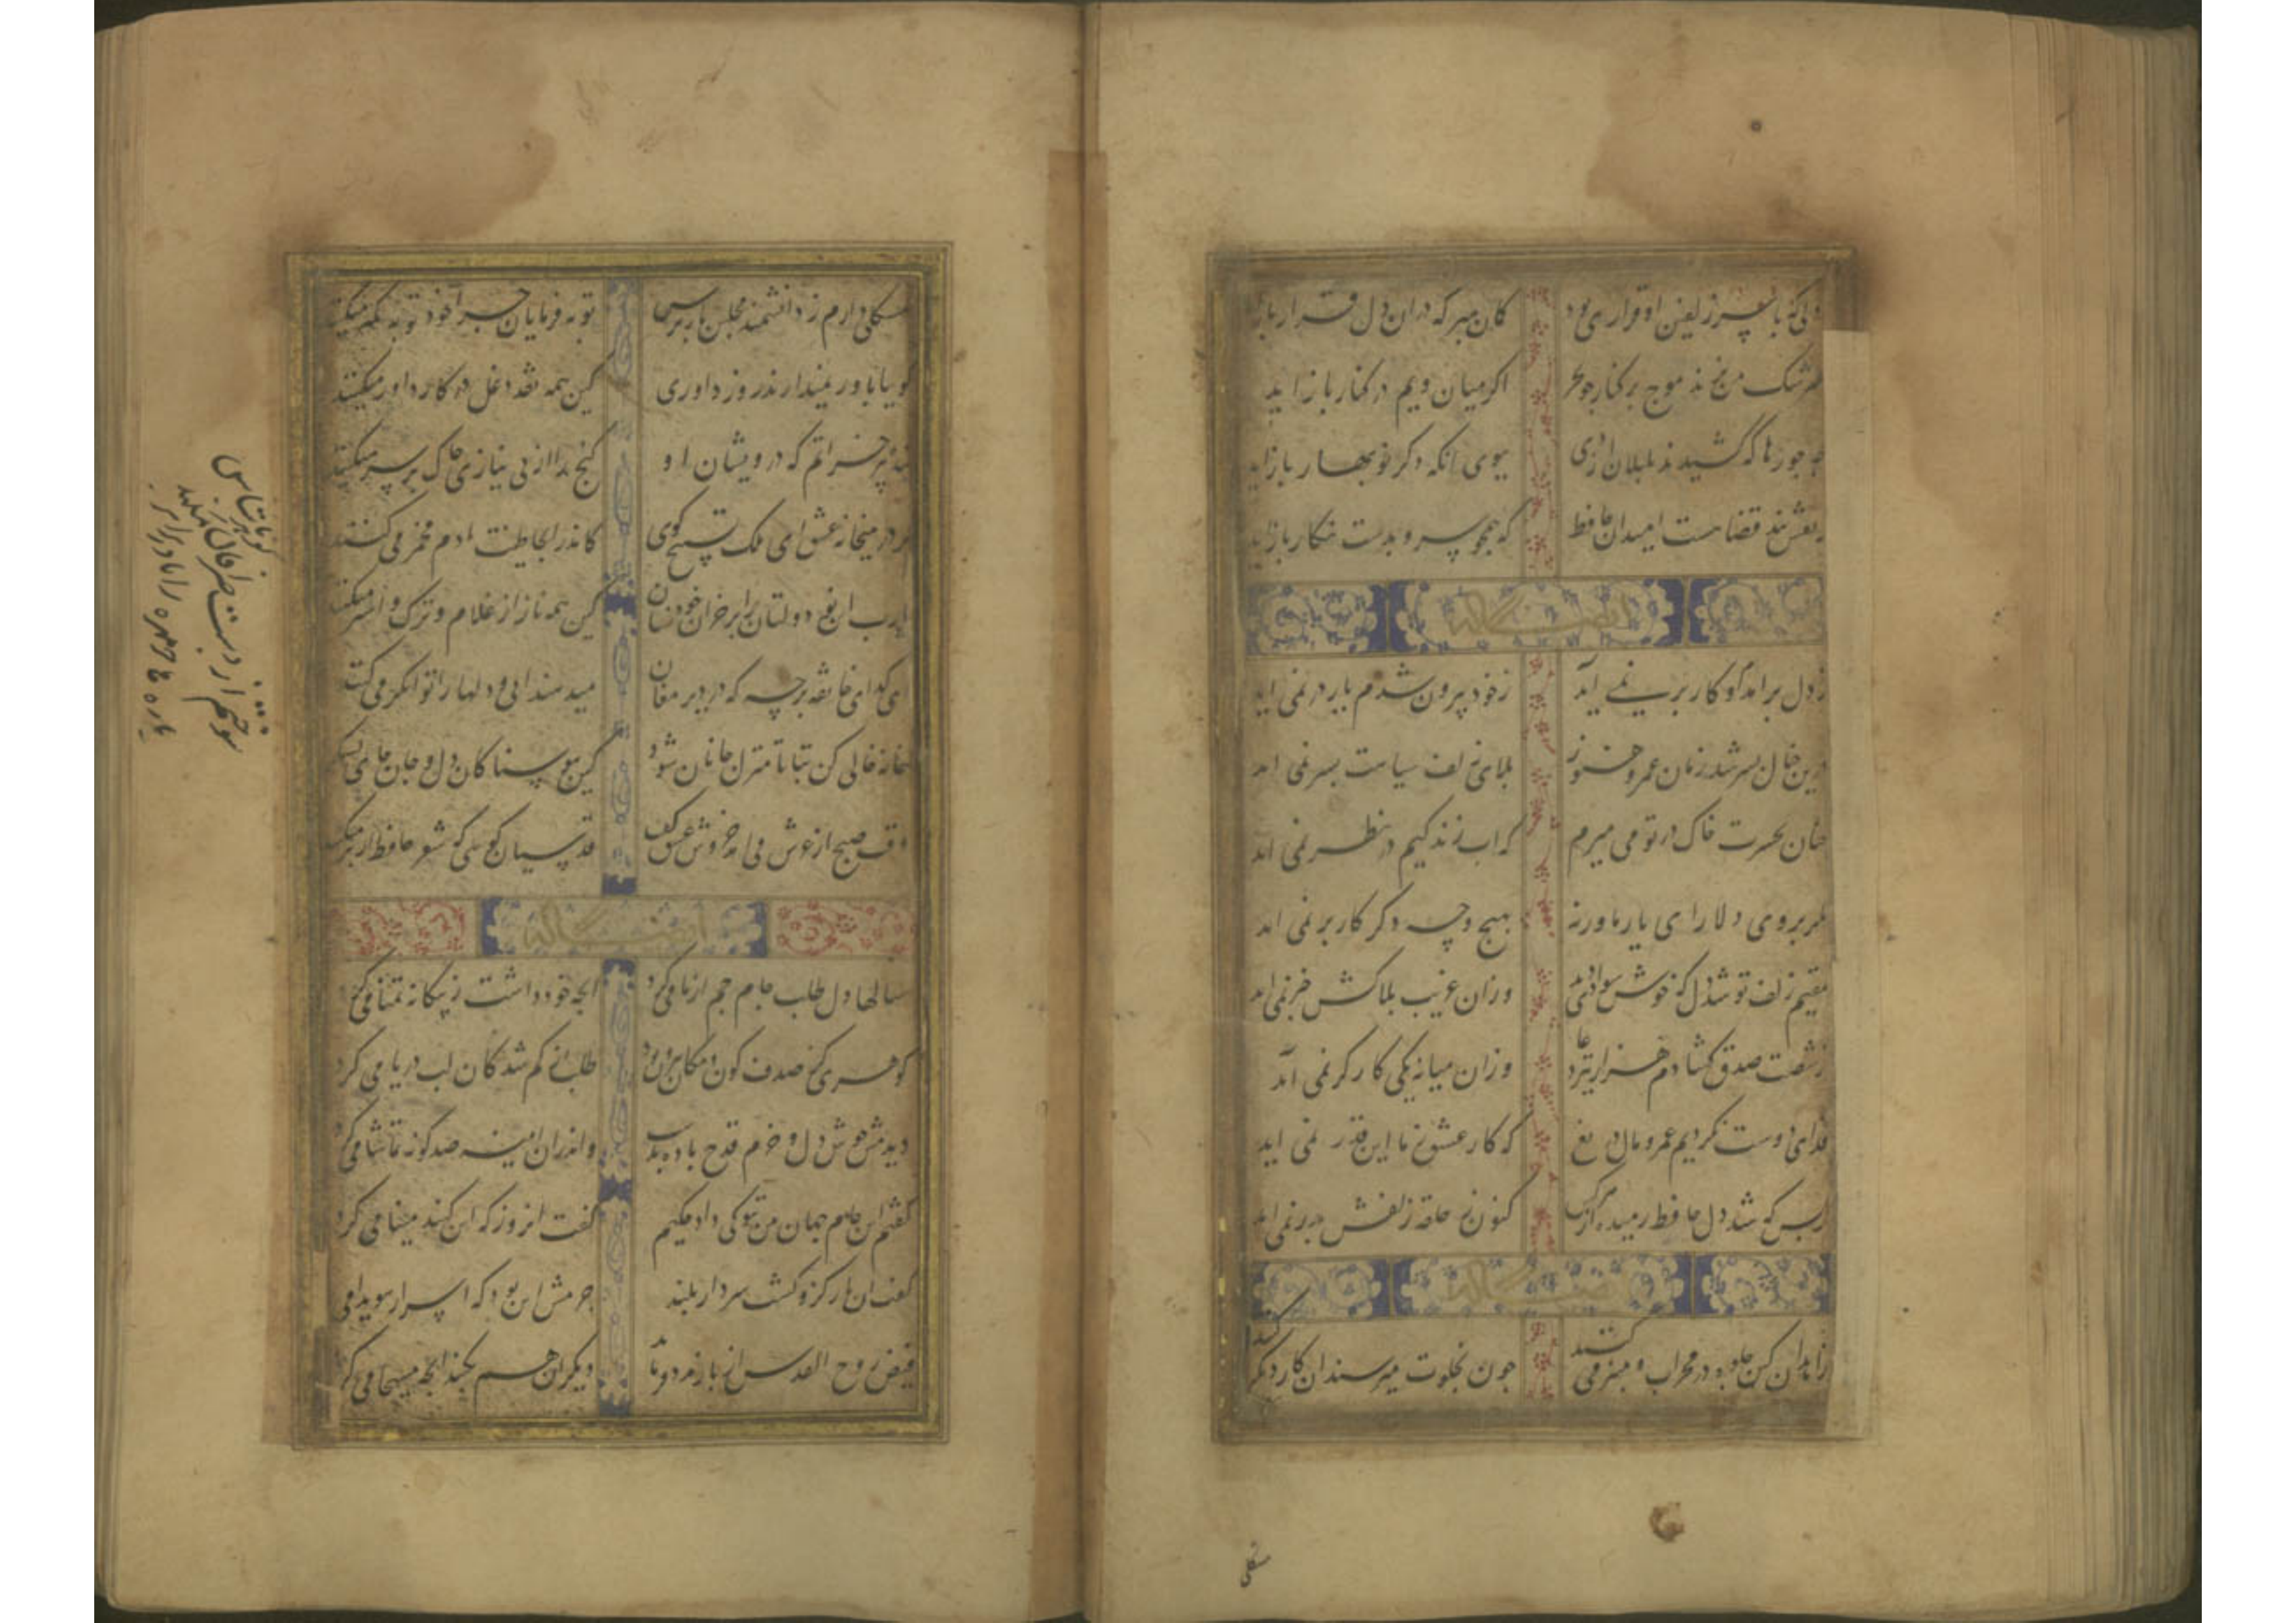 دلی که با سر زلفین او قراری بود کمان مبر که دران دل قرار باز
سرشک من نزند موج بر کنار چو بحر اکر میان ویم در کنار باز اید
چه جورها که کشیدند بلبلان از دی ببوی انکه دکر نوبهار باز اید
ز نقش بند قضا هست امید ان حافظ که همچو سرو بدست نکار باز اید
ز دل برامد و کار بر نمی آید ز خود برون شدم یار در نمی اید
درین خیال بسر شد زمان عمر و هنوز بلای زلف سیاهت بسر نمی اید
چنان بحسرت خاک در تو می میرم که اب زندکیم در نظر نمی اید
مکر بروی دلارای یار ما ورنه بهیچ وجه دکر کار بر نمی اید
مقیم زلف تو شد دل که خوش سوادی دید وزان غریب بلاکش خبر نمی اید
ز شصت صدق کشادم هزار تیر دعا وزان میانه یکی کارکر نمی آید
فدای دوست نکردیم عمر و مال دریغ که کار عشق ز ما این قدر نمی اید
ز بس که شد دل حافظ رمیده از هر کس کنون ز حلقه زلفش بدر نمی اید
زاهدان کین جلوه در محراب و منبر می کنند چون بخلوت میرسند ان کار دیکر کنند
مشکلی
مشکلی دارم ز دانشمند مجلس باز پرس توبه فرمایان چرا خود توبه کمتر میکنند
کویا باور نمیدارند روز داوری کین همه نقد و دغل در کار داور میکنند
بنده پیر خراباتم که درویشان او کنج را از بی نیازی خاک بر سر میکنند
بر در میخانه عشق ای ملک تسبیح کوی کاندر انجا طینت ادم مخمر می کنند
یارب این نو دولتان را بر خر خودشان نشان کین همه ناز از غلام و ترک و استر میکنند
ای کدای خانقه برجه که در دیر مغان میدهند ابی و دلها را توانکر می کنند
خانه خالی کن بتا تا منزل جانان شود کین هوسناکان دل و جان جای لشکر
وقت صبح از عرش می امد خروشی عقل کفت قدسیان کویی که شعر حافظ از بر میکنند
سالها دل طلب جام جم از ما می کرد انچه خود داشت ز بیکانه تمنا می کرد
کوهری کز صدف کون و مکان بیرون بود طلب از کم شدکان لب دریا می کرد
دیدمش خوش دل و خرم قدح باده بدست واندران اینه صد کونه تماشا می کرد
کفتم این جام جهان بین بتو کی داد حکیم کفت انروز که این کنبد مینا می کرد
کفت ان یار کزو کشت سر دار بلند جرمش این بود که اسرار هویدا می
فیض روح القدس ار باز مدد فرماید دیکران هم بکنند انچه مسیحا می کرد